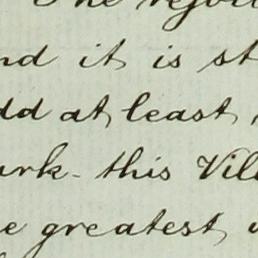 The
nd it is st
dd at least,
ark - this Vil
e greatest